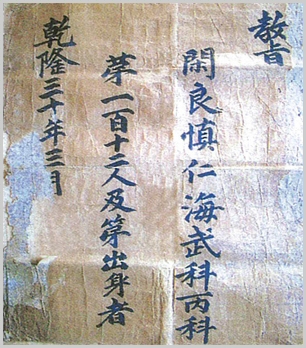 敎旨
閑良愼仁海武科丙科
第一百十三人及第出身者
乾隆三十年三月